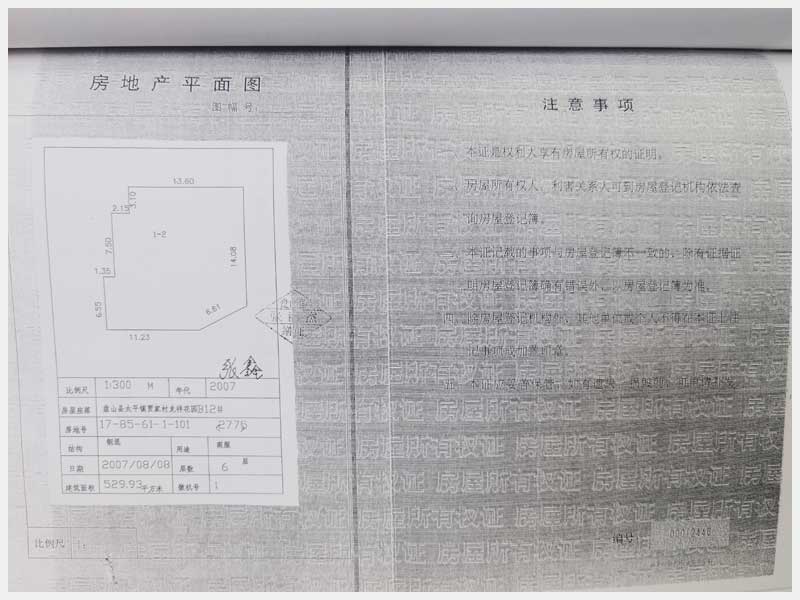 房地产平面图
图幅号:
13.60
3.10
2.15
1-2
7.50
14.08
1.35
6.55
6.61
11.23
比例尺 1:300 M 年代 2007
房屋座落 盘山县太平镇贾家村龙祥花园B12#
房地号 17-85-61-1-101 2776
结构 钢混 用途 商服
日期 2007/08/08 层数 6 层
建筑面积 529.93平方米 微机号 1
比例尺 1:
注意事项
本证是权利人享有房屋所有权的证明。
房屋所有权人、利害关系人可到房屋登记机构依法查
询房屋登记簿。
本证记载的事项与房屋登记簿不一致的，除有证据证
明房屋登记簿确有错误外，以房屋登记簿为准。
四、除房屋登记机构外，其他单位或个人不得在本证上注
记事项或加盖印章。
五、本证应妥善保管，如有遗失、损毁的，可申请补发。
编号